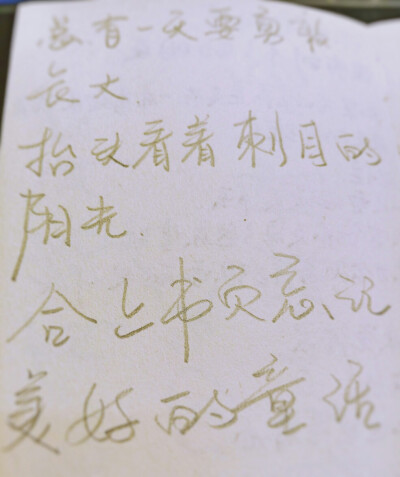 总有一天要勇敢
长大
抬头看着刺目的
阳光
合上书页忘记
美好的童话